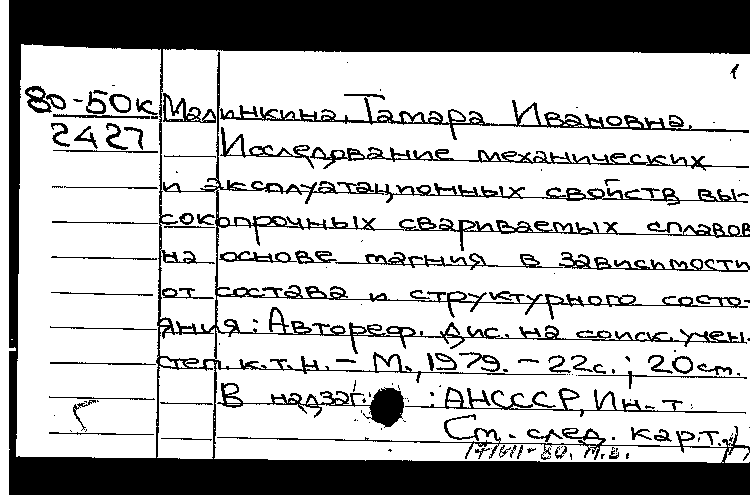 1
80-50к Малинкина, Тамара Ивановна.
2427 Исследование механических
и эксплуатационных свойств вы-
сокопрочных свариваемых сплавов
на основе магния в зависимости
от состава и структурного состо-
яния: Автореф. дис. на соиск. учен.
степ. к.т.н. - М., 1979. - 22с.; 20см.
В надзаг. : АНСССР, Ин-т
См. след. карт.